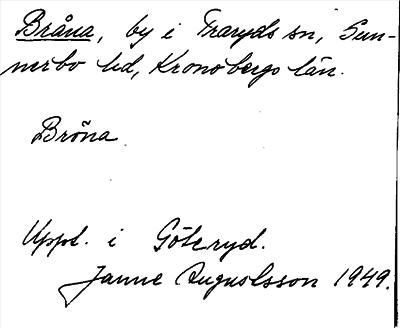 Bråna, by i Traryds sn, Sun-
nerbo hd, Kronobergs län.
Bröna
Uppt. i Göteryd.
Janne Augustsson 1949.